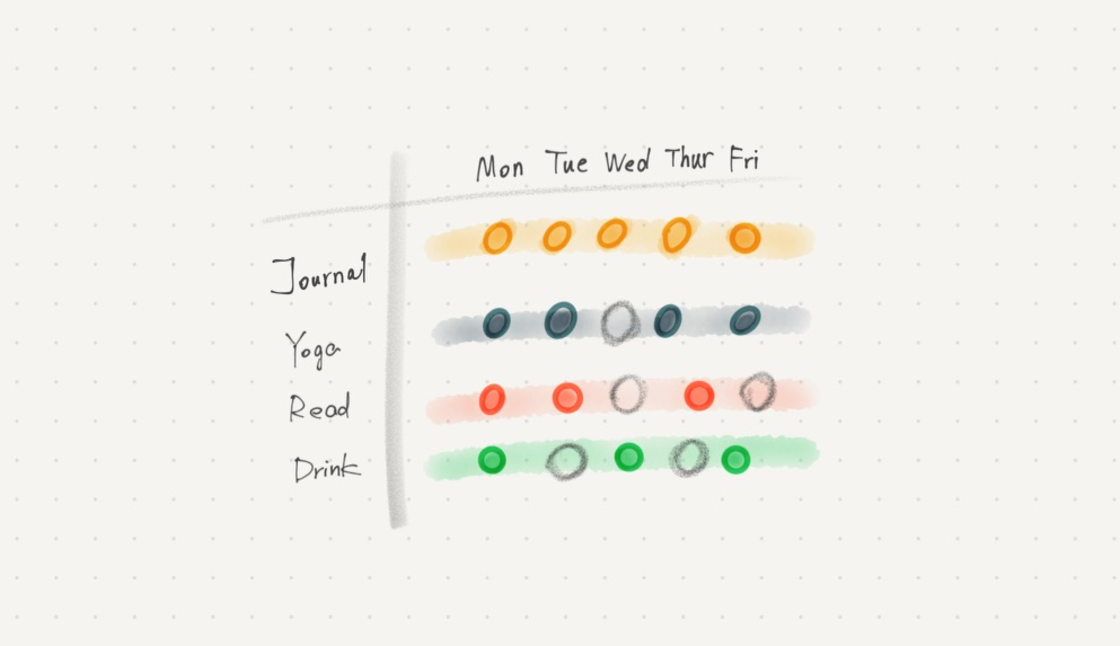 Mon Tue Wed Thur Fri
Journal
Yoga
Read
Drink